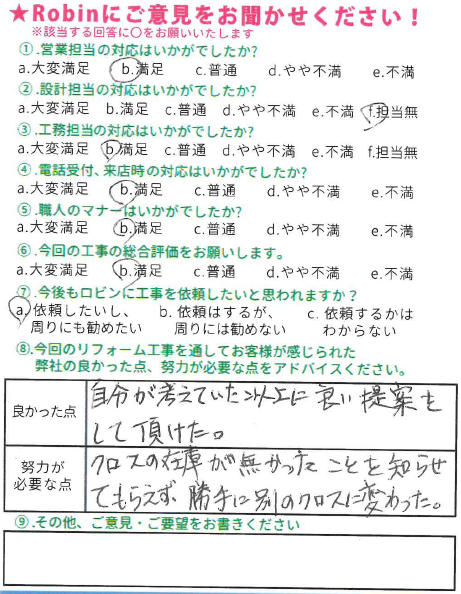 ★Robinにご意見をお聞かせください！
※該当する回答に〇をお願いいたします
①.営業担当の対応はいかがでしたか?
a.大変満足 b.満足 c.普通 d.やや不満 e.不満
②.設計担当の対応はいかがでしたか?
a.大変満足 b.満足 c.普通 d.やや不満 e.不満 f.担当無
③.工務担当の対応はいかがでしたか?
a.大変満足 b.満足 c.普通 d.やや不満 e.不満 f.担当無
④.電話受付、来店時の対応はいかがでしたか?
a.大変満足 b.満足 c.普通 d.やや不満 e.不満
⑤.職人のマナーはいかがでしたか?
a.大変満足 b.満足 c.普通 d.やや不満 e.不満
⑥.今回の工事の総合評価をお願いします。
a.大変満足 b.満足 c.普通 d.やや不満 e.不満
⑦.今後もロビンに工事を依頼したいと思われますか？
a.依頼したいし、 b. 依頼はするが、 c. 依頼するかは
周りにも勧めたい 周りには勧めない わからない
⑧.今回のリフォーム工事を通してお客様が感じられた
弊社の良かった点、努力が必要な点をアドバイスください。
良かった点
自分が考えていた以上に良い提案を
して頂けた。
努力が
必要な点
クロスの在庫が無かったことを知らせ
てもらえず、勝手に別のクロスに変わった。
⑨.その他、ご意見・ご要望をお書きください